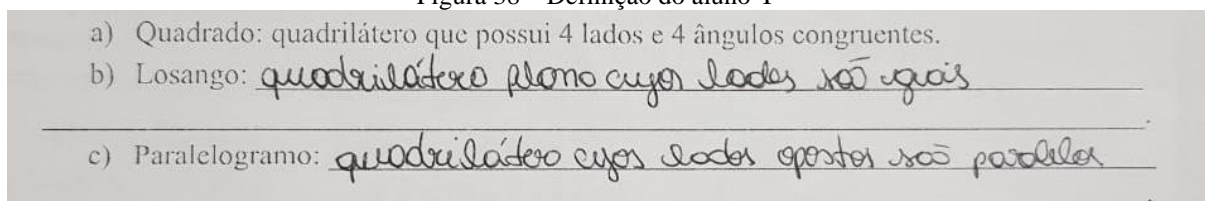 Figura 38 – Definição do aluno T
a) Quadrado: quadrilátero que possui 4 lados e 4 ângulos congruentes.
b) Losango: quadrilátero plano cujos lados são iguais
c) Paralelogramo: quadrilátero cujos lados opostos são paralelos